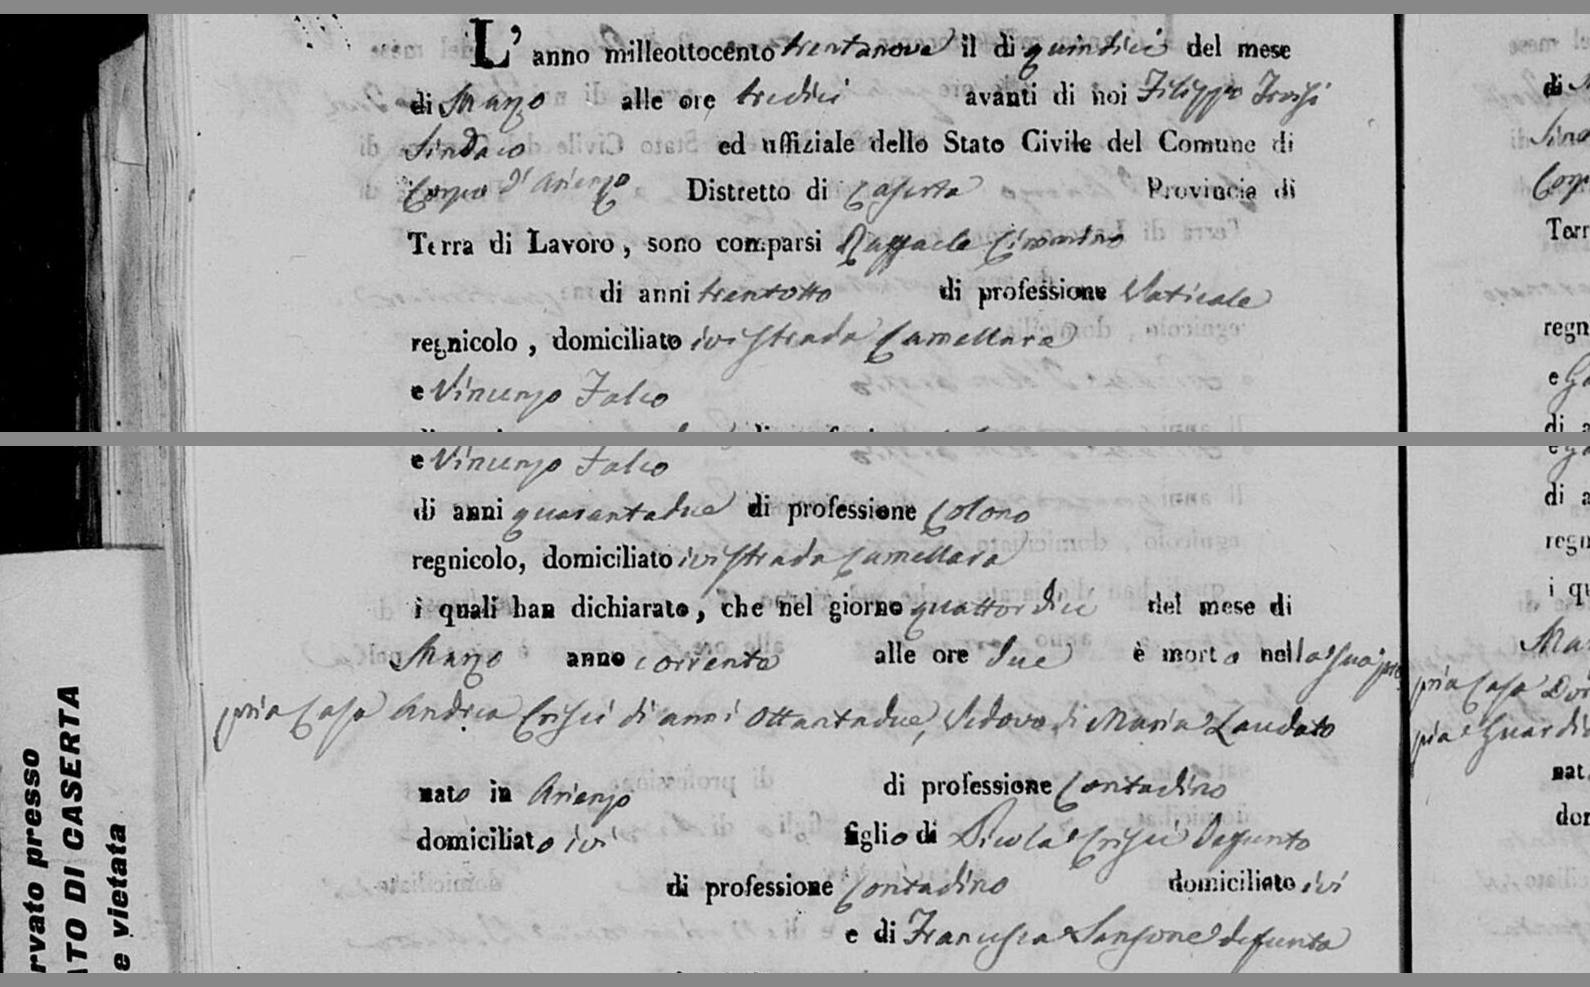 L' anno milleottocento trentanove il di quindici del mese
di Marzo alle ore tredici avanti di noi Filippo
Sindaco ed uffiziale dello Stato Civile del Comune di
Corpo d'Arienzo Distretto di Caserta Provincia di
Terra di Lavoro, sono comparsi Raffaele Cimmino
di anni trentotto di professione Vaticale
regnicolo, domiciliato ivi strada Camellara
e Vincenzo Falco
e Vincenzo Falco
di anni quarantadue di professione Colono
regnicolo, domiciliato ivi strada Camellara
i quali han dichiarato, che nel giorno quattordici del mese di
Marzo anno corrente alle ore due è morto nella sua pro
pria Casa Andrea Crisci di anni ottantadue, Vedovo di Maria Laudato
nato in Arienzo di professione Contadino
domiciliato ivi figlio di Nicola Crisci defunto
di professione Contadino domiciliato ivi
e di Francesca Sansone defunta
rvato presso
ATO DI CASERTA
e vietata